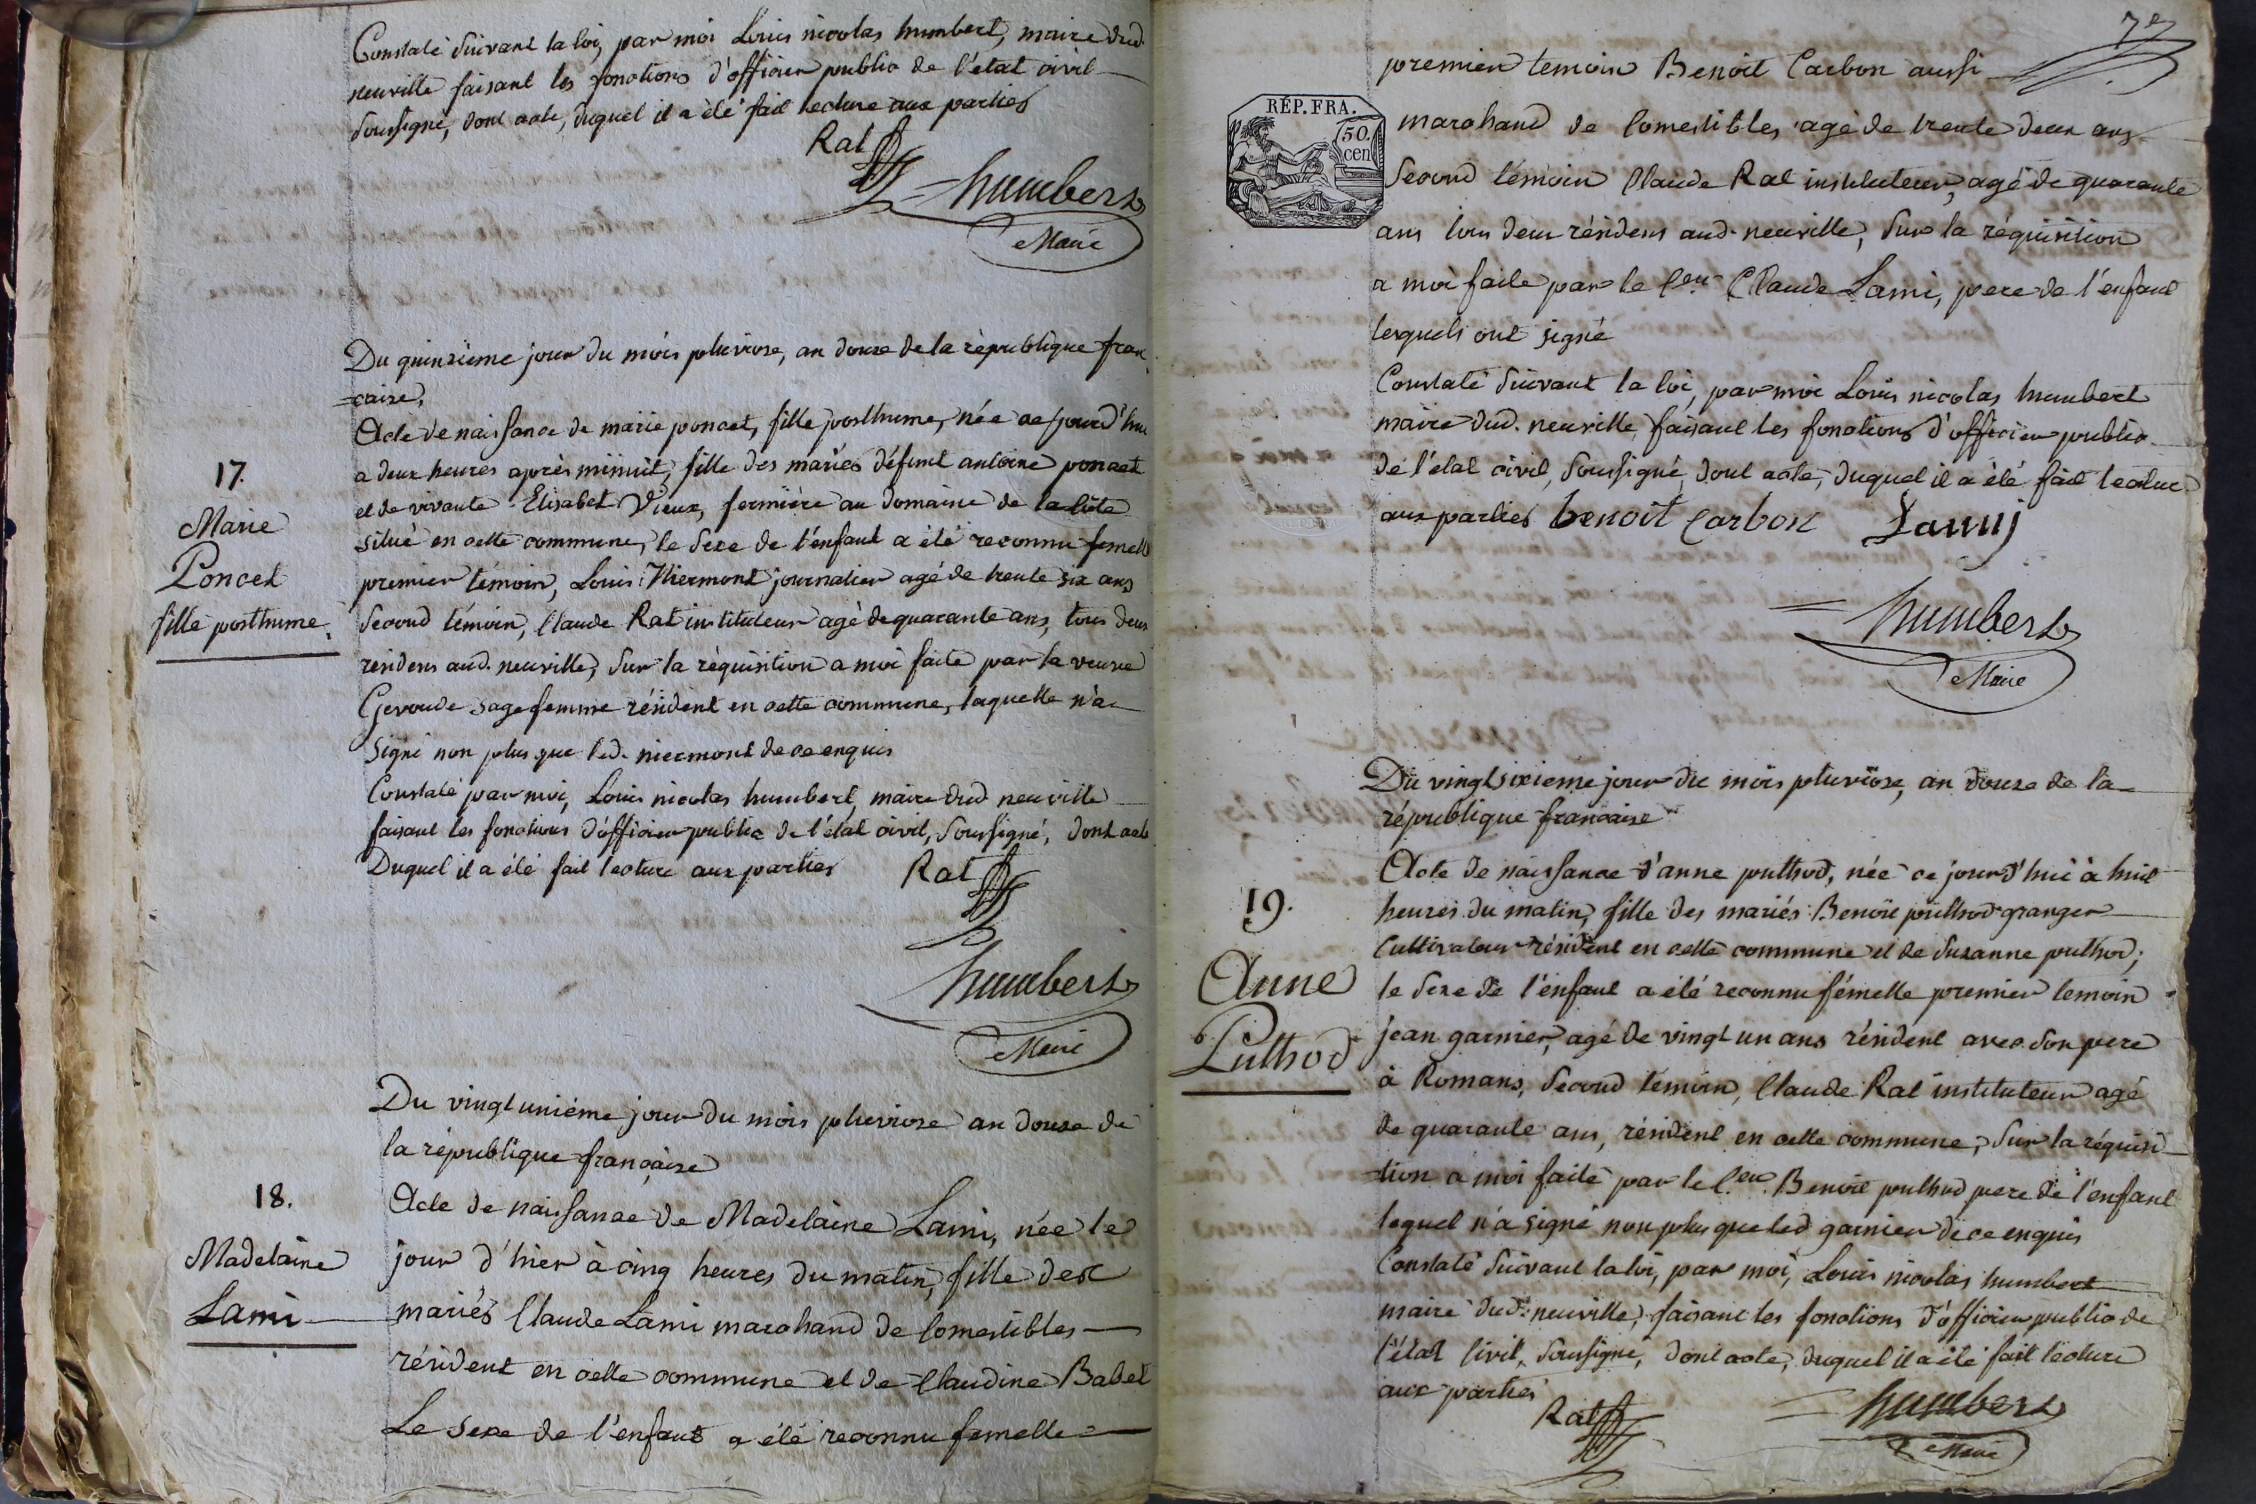 Constaté suivant la loi, par moi Louis nicolas humbert, maire dud.
neuville faisant les fonctions d'officier public de l'etat civil
soussigné, dont acte, duquel il a été fait lecture aux parties
Rat
humbert
Maire
Du quinzieme jour du mois pluviose, an douze de la république fran
=caise,
Acte de naissance de marie poncet, fille posthume, née ce jourd'hui
a deux heures après minuit, fille des mariés défunt antoine poncet
17.
et de vivante Elisabet Vieux, fermière au domaine de
Marie
situé en cette commune, le sexe de l'enfant a été reconnu femelle
Poncet
premier témoin, Louis Niermont journalier agé de trente six ans
fille posthume.
second témoin, Claude Rat instituteur agé de quarante ans, tous deux
residens aud. neuville, sur la réquisition a moi faite par la veuve
sage femme résident en cette commune, laquelle n'a
signé non plus que led. niermont de ce enquis
Constaté par moi, Louis nicolas humbert, maire dud neuville
faisant les fonctions d'officier public de l'état civil, soussigné, dont acte
Duquel il a été fait lecture aux parties
Rat
humbert
Maire
Du vingt unième jour du mois pluviose an douze de
la république française
18.
Acte de naissance de Madelaine Lami, née le
Madelaine
jour d'hier à cinq heures du matin, fille des
Lami
mariés Claude Lami marchand de Comestibles
résident en cette commune et de Claudine Babet
Le sexe de l'enfant a été reconnu femelle
premier temoin Benoit Carbon aussi
RÉP. FRA.
50.
cen
marchand de Comestibles agé de trente deux ans
second témoin Claude Rat instituteur, agé de quarante
ans tous deux résidens aud. neuville, sur la réquisition
a moi faite par le Cen Claude Lami, pere de l'enfant
lesquels ont signé
Constaté suivant la loi, par moi Louis nicolas humbert
maire dud. neuville, faisant les fonctions d'officier public
de l'état civil, soussigné, dont acte, duquel il a été fait lecture
aux parties benoit Carbon Lamij
humbert
Maire
Du vingt sixieme jour du mois pluviose, an douze de la
république francaise
Acte de naissance d'anne puthod, née ce jourd'hui à huit
19.
heures du matin, fille des mariés Benoit puthod granger
Cultivateur résident en cette commune et de Suzanne puthod;
Anne
le sexe de l'enfant a été reconnu fémelle premier temoin
Puthod
jean garnier, agé de vingt un ans résident avec son pere
à Romans, second témoin, Claude Rat instituteur agé
de quarante ans, résident en cette commune, sur la réquisi
-tion a moi faite par le Cen. Benoit puthod pere de l'enfant
lequel n'a signé non plus que led garnier de ce enquis
Constaté suivant la loi, par moi, Louis nicolas humbert
maire dud. neuville, faisant les fonctions d'officier public de
l'état Civil, soussigné, dont acte, duquel il a été fait lecture
aux parties
Rat
humbert
Maire